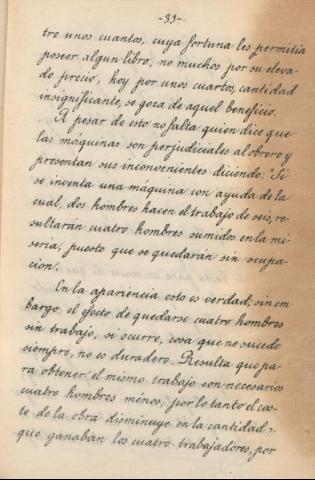 -33-
tre unos cuantos, cuya fortuna les permitia
poseer algun libro, no muchos por su eleva-
do precio, hoy por unos cuartos, cantidad
insignificante, se goza de aquel beneficio.
A pesar de esto no falta quien dice que
las máquinas son perjudiciales al obrero y
presentan sus inconvenientes diciendo: "Si
se inventa una máquina con ayuda de la
cual, dos hombres hacen el trabajo de seis, re-
sultarán cuatro hombres sumidos en la mi-
seria, puesto que se quedarán sin ocupa-
cion."
En la apariencia esto es verdad; sin em-
bargo el efecto de quedarse cuatro hombres
sin trabajo, si ocurre, cosa que no sucede
siempre, no es duradero. Resulta que pa-
ra obtener el mismo trabajo son necesarios
cuatro hombres ménos, por lo tanto el cos-
te de la obra disminuye en la cantidad
que ganaban los cuatro trabajadores, por